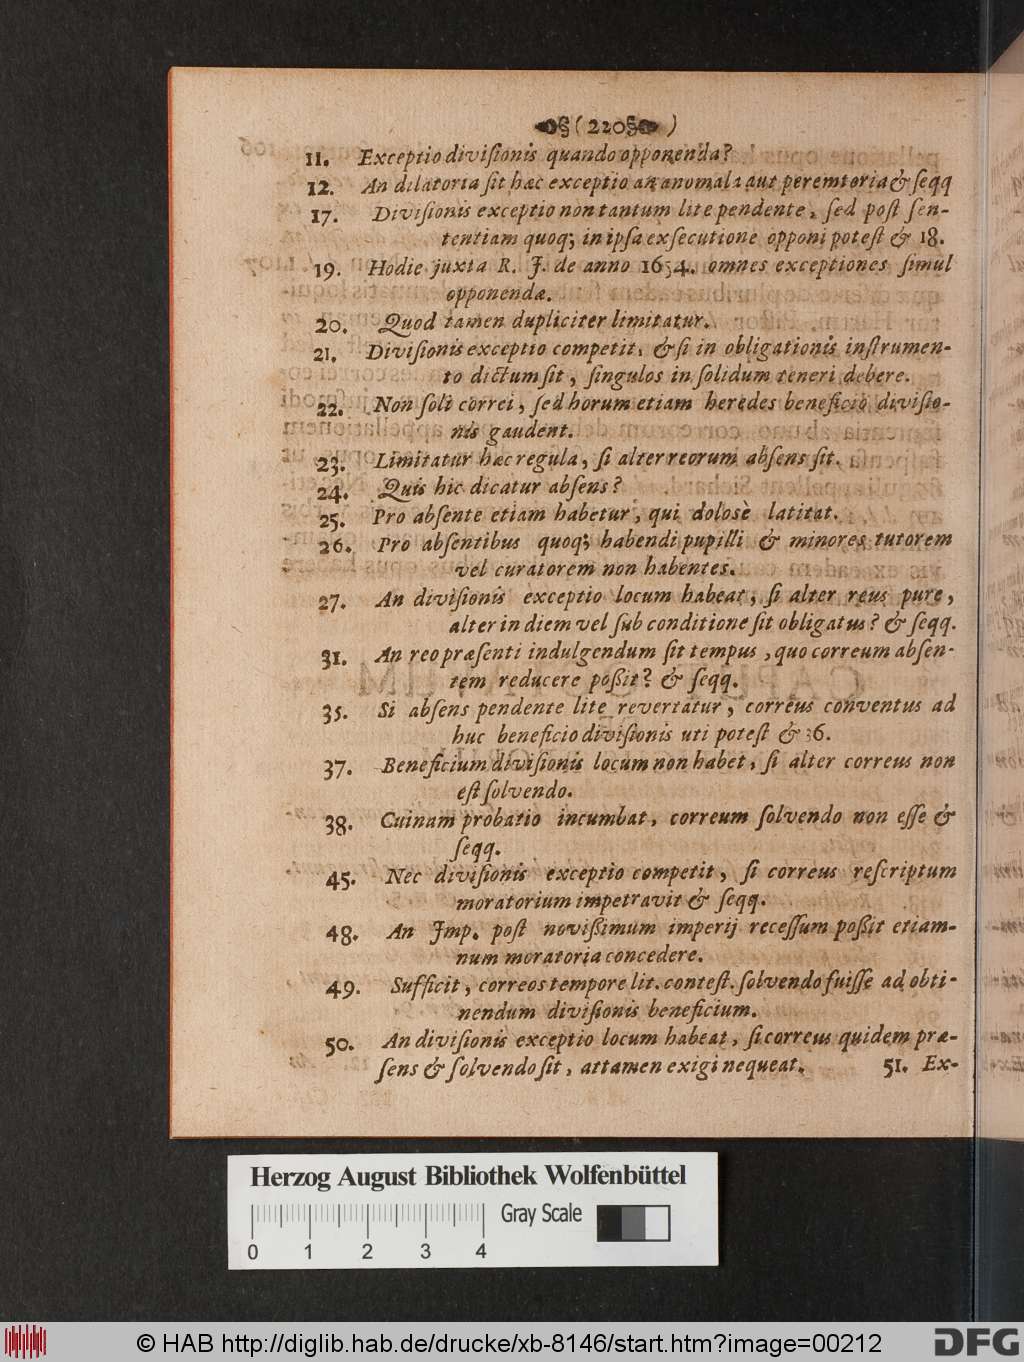 §( 220§ )
11. Exceptio diviſionis quando opponenda?
12. An dilatoria ſit hæc exceptio an anomala aut peremtoria & ſeqq
17. Diviſionis exceptio non tantum lite pendente, ſed poſt ſen-
tentiam quoq; in ipſa exſecutione opponi poteſt & 18.
19. Hodie juxta R. J. de anno 1654. omnes exceptiones ſimul
opponendæ.
20. Quod tamen dupliciter limitatur.
21. Diviſionis exceptio competit, & ſi in obligationis inſtrumen-
to dictum ſit, ſingulos in ſolidum teneri debere.
22. Non ſoli correi, ſed horum etiam heredes beneficio diviſio-
nis gaudent.
23. Limitatur hæc regula, ſi alter reorum abſens ſit.
24. Quis hic dicatur abſens?
25. Pro abſente etiam habetur, qui dolosè latitat.
26. Pro abſentibus quoq; habendi pupilli & minores tutorem
vel curatorem non habentes.
27. An diviſionis exceptio locum habeat, ſi alter reus pure,
alter in diem vel ſub conditione ſit obligatus? & ſeqq.
31. An reo præſenti indulgendum ſit tempus, quo correum abſen-
tem reducere poßit? & ſeqq.
35. Si abſens pendente lite revertatur, correus conventus ad
huc beneficio diviſionis uti poteſt & 36.
37. Beneficium diviſionis locum non habet, ſi alter correus non
eſt ſolvendo.
38. Cuinam probatio incumbat, correum ſolvendo non eſſe &
ſeqq.
45. Nec diviſionis exceptio competit, ſi correus reſcriptum
moratorium impetravit & ſeqq.
48. An Jmp. poſt novißimum imperij receſſum poßit etiam-
num moratoria concedere.
49. Sufficit, correos tempore lit. conteſt. ſolvendo fuiſſe ad obti-
nendum diviſionis beneficium.
50. An diviſionis exceptio locum habeat, ſi correus quidem præ-
ſens & ſolvendo ſit, attamen exigi nequeat. 51. Ex-
Herzog August Bibliothek Wolfenbüttel
Gray Scale
0 1 2 3 4
© HAB http://diglib.hab.de/drucke/xb-8146/start.htm?image=00212
DFG